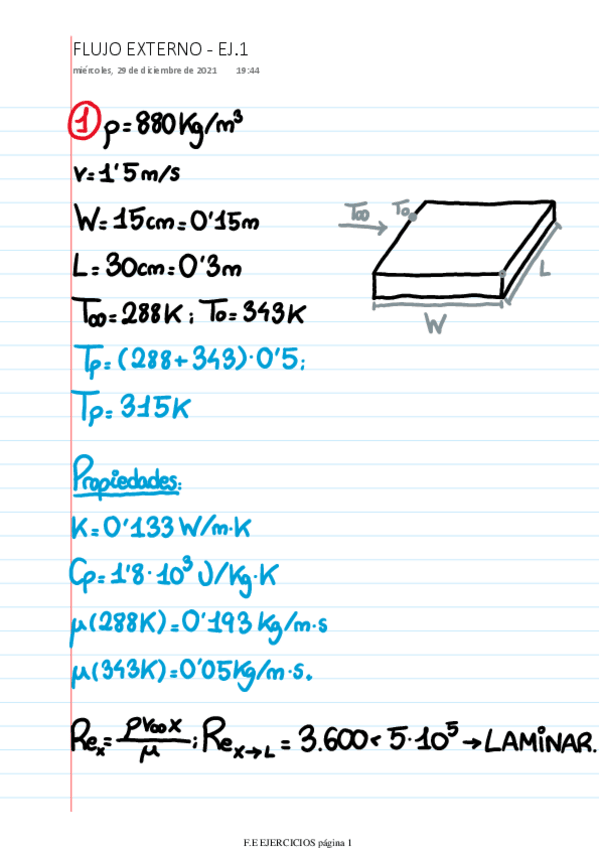 FLUJO EXTERNO - EJ.1
miércoles, 29 de diciembre de 2021 19:44
① ρ = 880 Kg/m³
v = 1'5 m/s
W = 15cm = 0'15m
L = 30cm = 0'3m
T∞ = 288K ; To = 343K
T∞ To
L
W
Tp = (288 + 343) · 0'5 ;
Tp = 315K
Propiedades:
K = 0'133 W/m·K
Cp = 1'8 · 10³ J/Kg·K
μ(288K) = 0'193 Kg/m·s
μ(343K) = 0'05 Kg/m·s.
Reₓ = ρv∞x/μ ; Re x→L = 3.600 < 5·10⁵ → LAMINAR.
F.E EJERCICIOS página 1